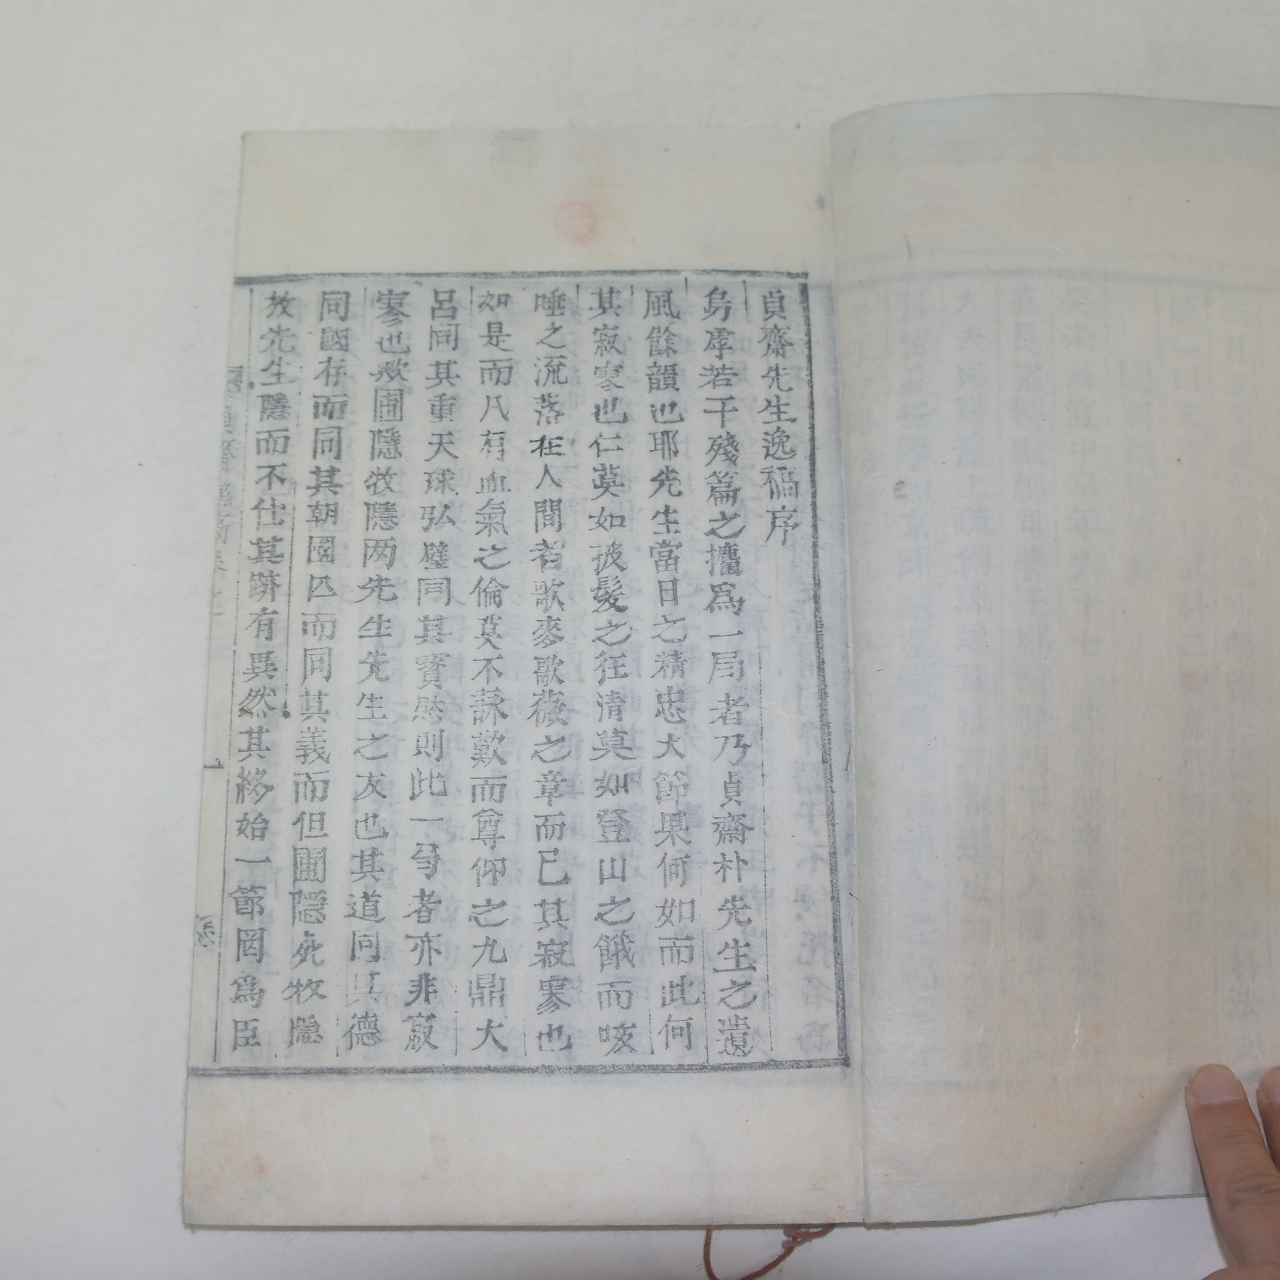 貞齋先生逸稿序
烏虖若干殘篇之攟爲一局者乃貞齋朴先生之遺
風餘韻也耶先生當日之精忠大節果何如而此何
其寂寥也仁莫如披髮之狂清莫如登山之餓而咳
唾之流落在人間者歌麥歌薇之章而已其寂寥也
如是而凡有血氣之倫莫不誦歎而尊仰之九鼎大
呂同其重天球弘璧同其寶然則此一芶者亦非寂
寥也歟圃隱牧隱两先生先生之友也其道同其德
同國存而同其朝國亾而同其義而但圃隱死牧隱
放先生隱而不仕其跡有異然其終始一節罔爲臣